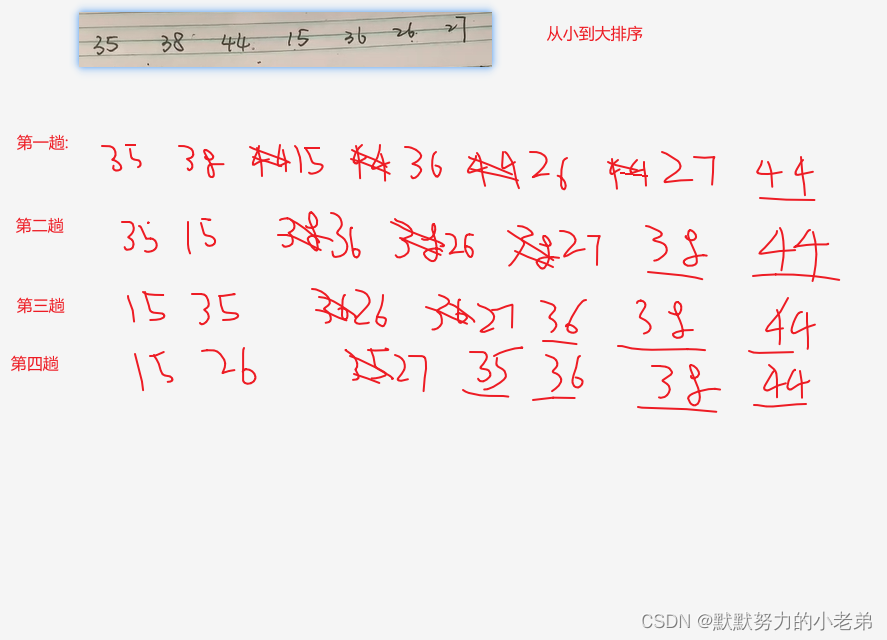 35 38 44 15 36 26 27
从小到大排序
第一趟: 35 38 44 15 44 36 44 26 44 27 44
第二趟 35 15 38 36 38 26 38 27 38 44
第三趟 15 35 36 26 36 27 36 38 44
第四趟 15 26 35 27 35 36 38 44
CSDN @默默努力的小老弟